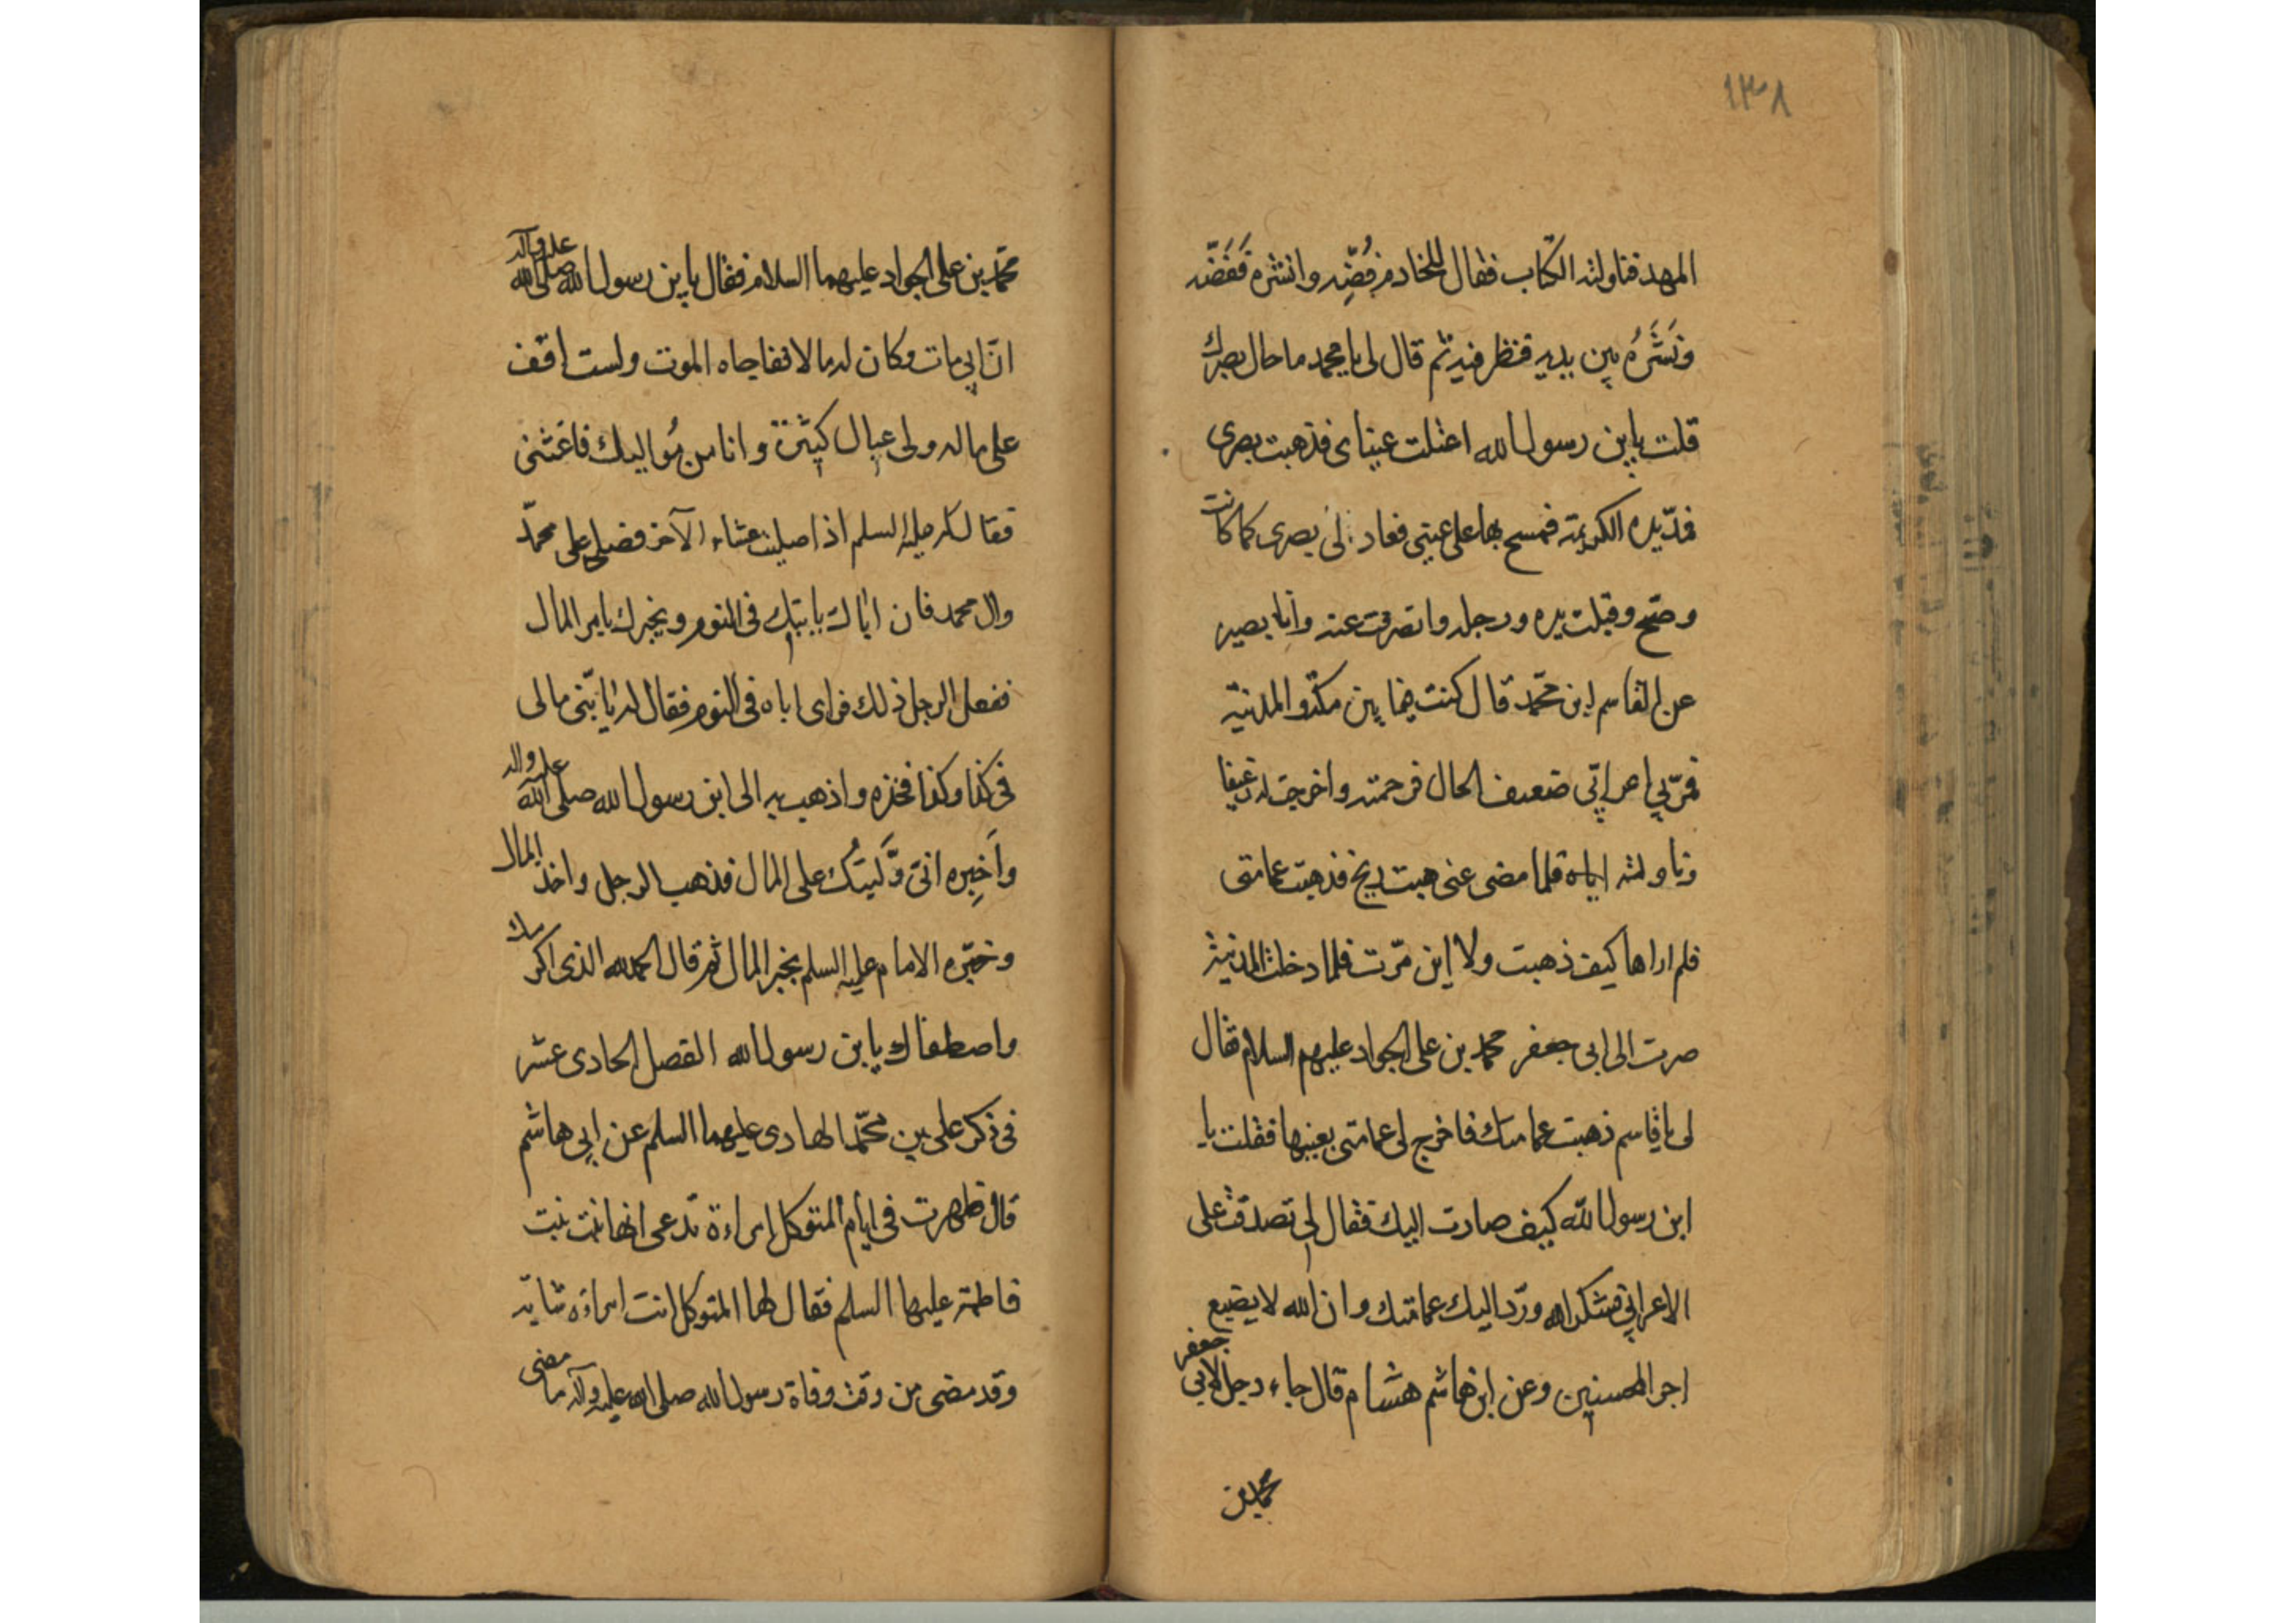 ١٣٨
المهد فناولته الكتاب فقال للخادم فُضِّه وانشره فَفَضّه
ونَشَرَهُ بين يديه فنظر فيه ثم قال لى يا محمد ما حال بصرك
قلت يابن رسول الله اعتلت عيناى فذهبت بصرى
فمدّ يده الكريمة فمسح بها على عينى فعاد الىّ بصرى كما كانت
وصحّ وقبلت يده ورجله وانصرفت عنه وانا بصير
عن القاسم ابن محمّد قال كنت فيما بين مكة والمدينة
فمرّ بي اعرابّى ضعيف الحال فرحمته واخرجت له رغيفا
وناولته اياه فلما مضى عنى هبت ريح فذهبت عمامتى
فلم اراها كيف ذهبت ولا اين مرّت فلما دخلت المدينة
صرت الى ابى جعفر محمد بن على الجواد عليهم السلام فقال
لى يا قاسم ذهبت عمامتك فاخرج لى عمامتى بعينها فقلت يا
ابن رسول الله كيف صارت اليك فقال لى تصدقت على
الاعرابي فشكر الله وردّ اليك عمامتك وان الله لا يضيع
اجر المحسنين وعن ابن هاشم هشام قال جاء رجل لابي جعفر
محمد بن
محمّد بن على الجواد عليهما السلام فقال يابن رسول الله صلى الله عليه وآله
انّ ابى مات وكان له مالا ففاجاه الموت ولست اقف
على ماله ولى عيال كثيرة وانا من مُواليك فاغثنى
فقال له عليه السلم اذا صليت عشاء الآخر فصل على محمّد
وال محمد فان اباك ياتيك فى النوم ويخبرك بامر المال
ففعل الرجل ذلك فراى اباه فى النوم فقال له يا بنّى مالى
فى كذا وكذا فخذه واذهب به الى ابن رسول الله صلى الله عليه واله
واَخبِره انى وَّلَيتُك على المال فذهب الرجل واخذ المال
وخبّره الامام عليه السلم بخبر المال ثم قال الحمد لله الذى اكرمك
واصطفاك يابن رسول الله الفصل الحادى عشر
فى ذكر على بن محمّد الهادى عليهما السلم عن ابى هاشم
قال ظهرت فى ايام المتوكل امراءة تدعى انها بنت
فاطمة عليها السلم فقال لها المتوكل انت امراءة شابة
وقد مضى من وقت وفاة رسول الله صلى الله عليه وآله ما مضى